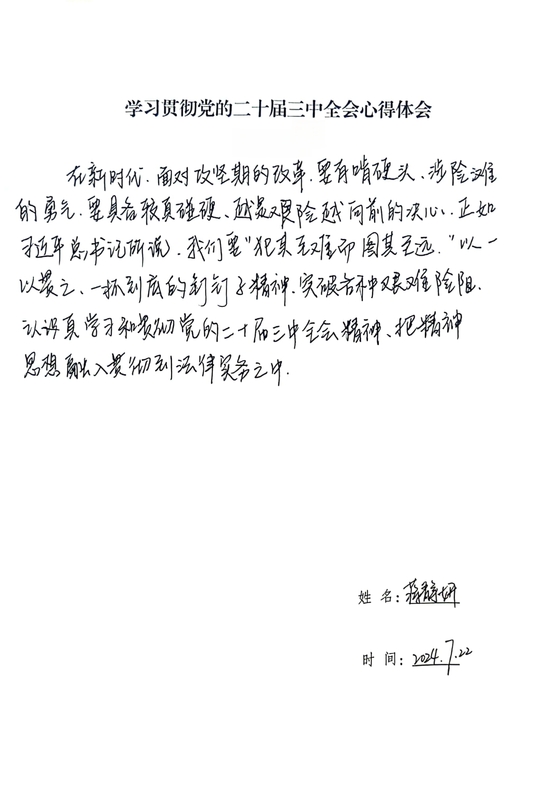 学习贯彻党的二十届三中全会心得体会
在新时代.面对攻坚期的改革.要有啃硬头、涉险滩
的勇气.要具备较真碰硬、越是艰险越向前的决心.正如
习近平总书记所说,我们要"犯其至难而图其至远."以一
以贯之、一抓到底的钉钉子精神.突破各种艰难险阻.
认识真学习和贯彻党的二十届三中全会精神、把精神
思想融入贯彻到法律实务之中.
姓 名:蒋静妍
时 间:2024.7.22